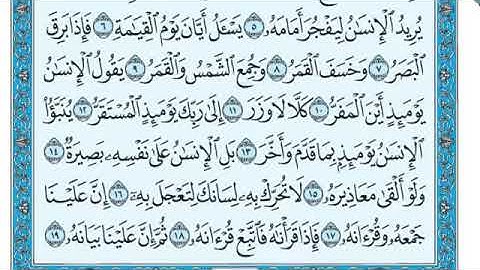 يُرِيدُ الْإِنسَٰنُ لِيَفْجُرَ أَمَامَهُۥ ۝٥ يَسْـَٔلُ أَيَّانَ يَوْمُ الْقِيَٰمَةِ ۝٦ فَإِذَا بَرِقَ
الْبَصَرُ ۝٧ وَخَسَفَ الْقَمَرُ ۝٨ وَجُمِعَ الشَّمْسُ وَالْقَمَرُ ۝٩ يَقُولُ الْإِنسَٰنُ
يَوْمَئِذٍ أَيْنَ الْمَفَرُّ ۝١٠ كَلَّا لَا وَزَرَ ۝١١ إِلَىٰ رَبِّكَ يَوْمَئِذٍ الْمُسْتَقَرُّ ۝١٢ يُنَبَّؤُا۟
الْإِنسَٰنُ يَوْمَئِذٍۭ بِمَا قَدَّمَ وَأَخَّرَ ۝١٣ بَلِ الْإِنسَٰنُ عَلَىٰ نَفْسِهِۦ بَصِيرَةٌ ۝١٤
وَلَوْ أَلْقَىٰ مَعَاذِيرَهُۥ ۝١٥ لَا تُحَرِّكْ بِهِۦ لِسَانَكَ لِتَعْجَلَ بِهِۦٓ ۝١٦ إِنَّ عَلَيْنَا
جَمْعَهُۥ وَقُرْءَانَهُۥ ۝١٧ فَإِذَا قَرَأْنَٰهُ فَاتَّبِعْ قُرْءَانَهُۥ ۝١٨ ثُمَّ إِنَّ عَلَيْنَا بَيَانَهُۥ ۝١٩